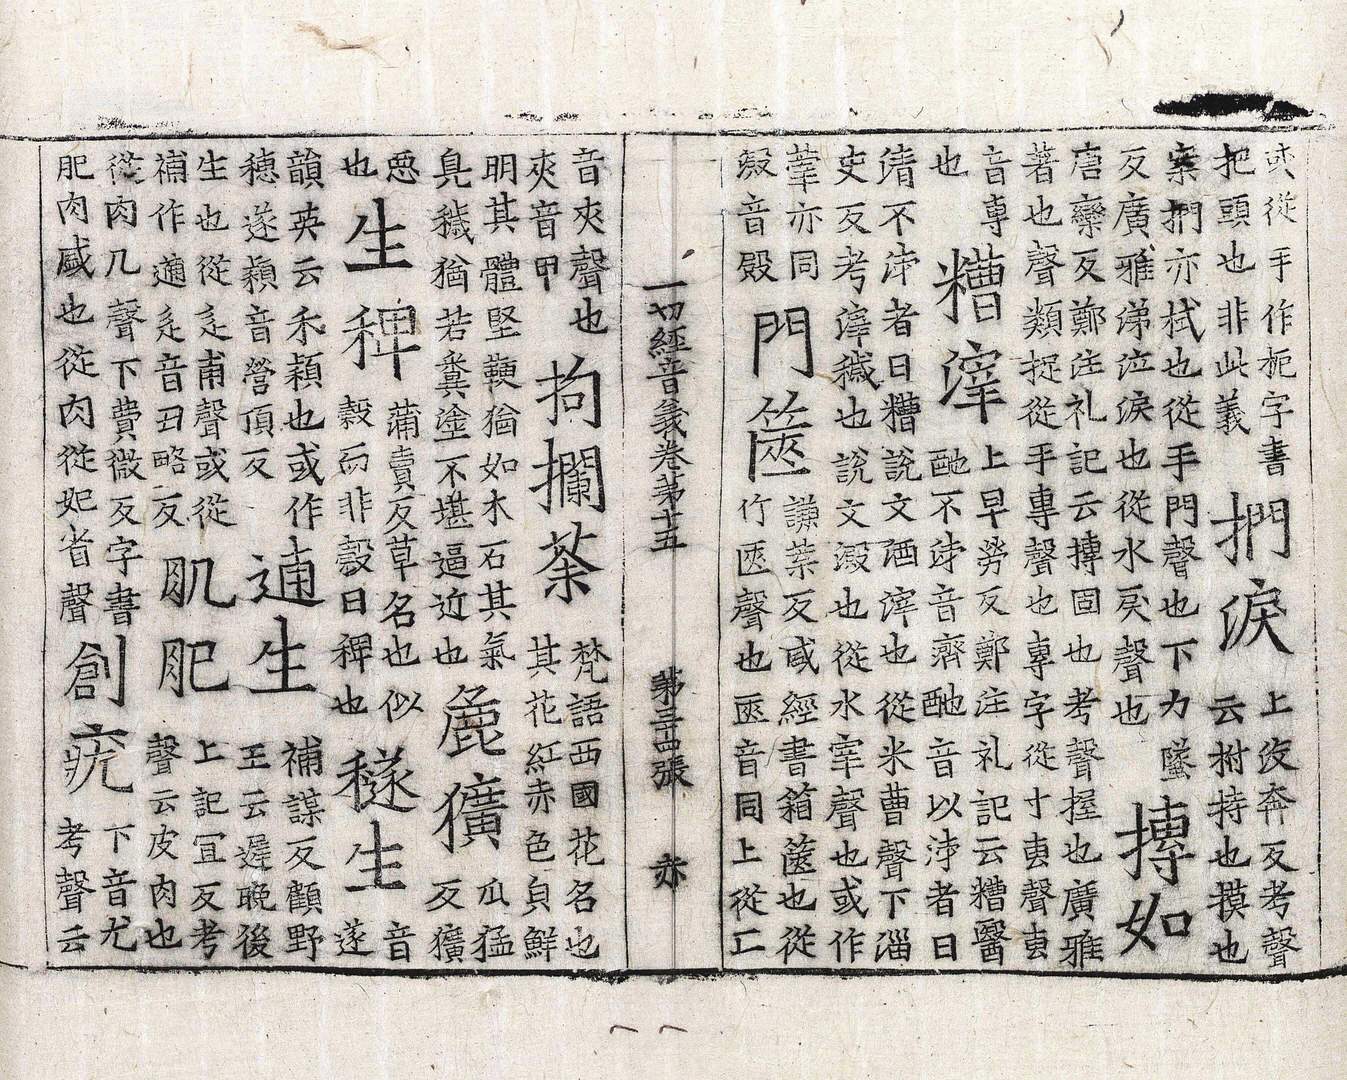 從手作扼字書
把頭也非此義
捫淚
上没奔反考聲
云拊持也摸也
案捫亦拭也從手門聲也下力墜
反廣雅涕泣淚也從水戾聲也
摶如
唐欒反鄭注礼記云摶固也考聲握也廣雅
著也聲類捉從手專聲也專字從寸叀聲叀
音專
也
糟滓
上早勞反鄭注礼記云糟醫
酏不泲音齊酏音以泲者曰
清不泲者曰糟說文酒滓也從米曹聲下淄
史反考滓穢也說文澱也從水宰聲也或作
亦同
澱音殿
門篋
謙葉反咸經書箱篋也從
竹匧聲也匧音同上從匚
一切經音義卷第十五 第三四張 亦
音夾聲也
夾音甲
拘攔荼
梵語西國花名也
其花紅赤色負鮮
明其體堅鞕猶如木石其氣
臭穢猶若糞塗不堪逼近也
麁獷
瓜猛
反獷
惡
也
生稗
蒲賣反草名也似
穀而非穀曰稗也
穟生
音
遂
韻英云禾穎也或作
穗遂穎音營頂反
逋生
補謀反顧野
王云遲晚後
生也從辵甫聲或從
補作逋辵音丑略反
肌肥
上記冝反考
聲云皮肉也
從肉几聲下費微反字書
肥肉咸也從肉從妃省聲
創疣
下音尤
考聲云